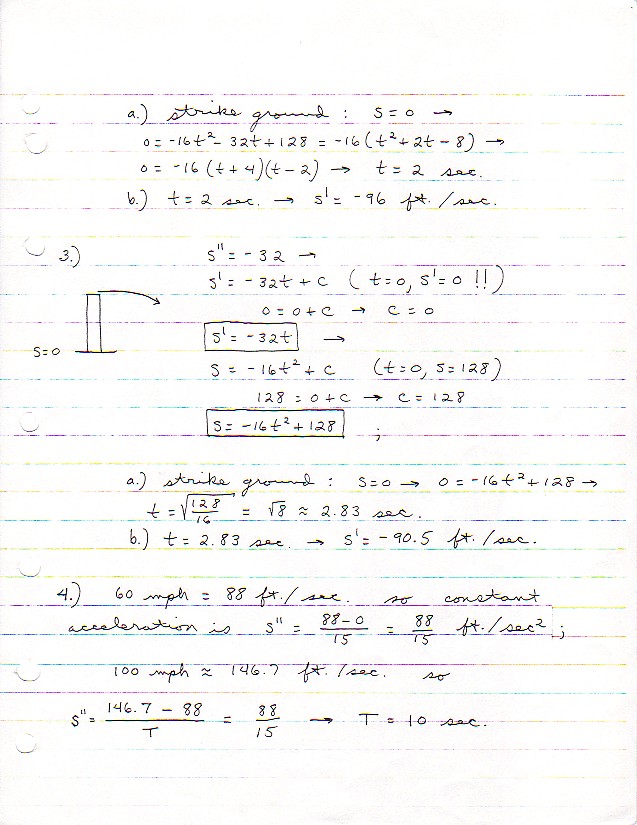 a.) strike ground : S = 0 →
0 = -16t² - 32t + 128 = -16(t² + 2t - 8) →
0 = -16(t + 4)(t - 2) → t = 2 sec.
b.) t = 2 sec. → S' = -96 ft./sec.
3.) S'' = -32 →
S' = -32t + C (t = 0, S' = 0 !!)
0 = 0 + C → C = 0
S' = -32t →
S = 0
S = -16t² + C (t = 0, S = 128)
128 = 0 + C → C = 128
S = -16t² + 128 ;
a.) strike ground : S = 0 → 0 = -16t² + 128 →
t = √(128/16) = √8 ≈ 2.83 sec.
b.) t = 2.83 sec. → S' = -90.5 ft./sec.
4.) 60 mph = 88 ft./sec. so constant
acceleration is S'' = (88 - 0)/15 = 88/15 ft./sec² ;
100 mph ≈ 146.7 ft./sec. so
S'' = (146.7 - 88)/T = 88/15 → T = 10 sec.